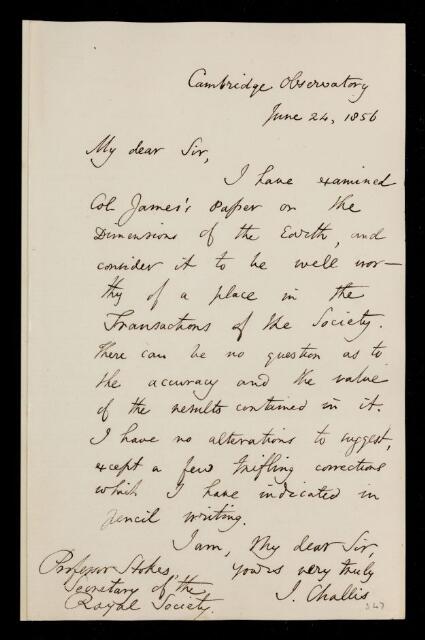 Cambridge Observatory
June 24, 1856
My dear Sir,
I have examined
Col James's Paper on the
Dimensions of the Earth, and
consider it to be well wor-
thy of a place in the
Transactions of the Society.
There can be no question as to
the accuracy and the value
of the results contained in it.
I have no alterations to suggest,
except a few trifling corrections
which I have indicated in
pencil writing.
I am, My dear Sir,
yours very truly
J. Challis
Professor Stokes
Secretary of the
Royal Society.
347